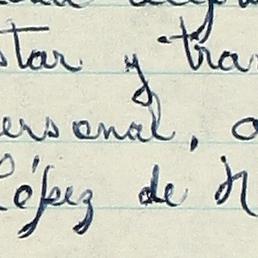 star y tra
ersonal, a
López de N